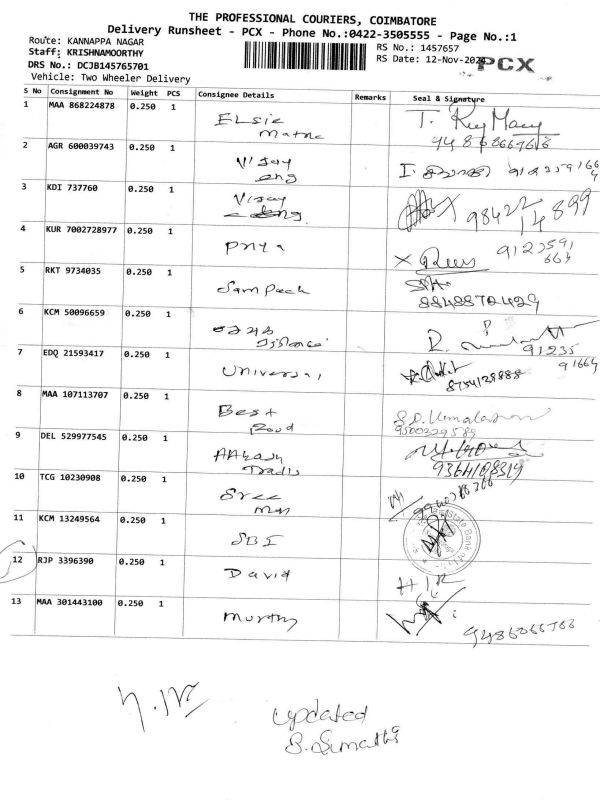 THE PROFESSIONAL COURIERS, COIMBATORE
Delivery Runsheet - PCX - Phone No.:0422-3505555 - Page No.:1
Route: KANNAPPA NAGAR
RS No.: 1457657
Staff: KRISHNAMOORTHY
RS Date: 12-Nov-2024
PCX
DRS No.: DCJB145765701
Vehicle: Two Wheeler Delivery
S No Consignment No Weight PCS Consignee Details Remarks Seal & Signature
1 MAA 868224878 0.250 1 Elsie
2 AGR 600039743 0.250 1 Vijay eng
3 KDI 737760 0.250 1 Vijay eng. 98422 14899
4 KUR 7002728977 0.250 1 Priya 9123591664
5 RKT 9734035 0.250 1 Sampack
6 KCM 50096659 0.250 1 91235
7 EDQ 21593417 0.250 1 Universal 91664 8754128888
8 MAA 107113707 0.250 1 Best Food 9500329589
9 DEL 529977545 0.250 1 Aakash Tradis 9364108319
10 TCG 10230908 0.250 1 Sree
11 KCM 13249564 0.250 1 SBI State Bank of
12 RJP 3396390 0.250 1 David
13 MAA 301443100 0.250 1 Murthy
updated
S. Sumathi